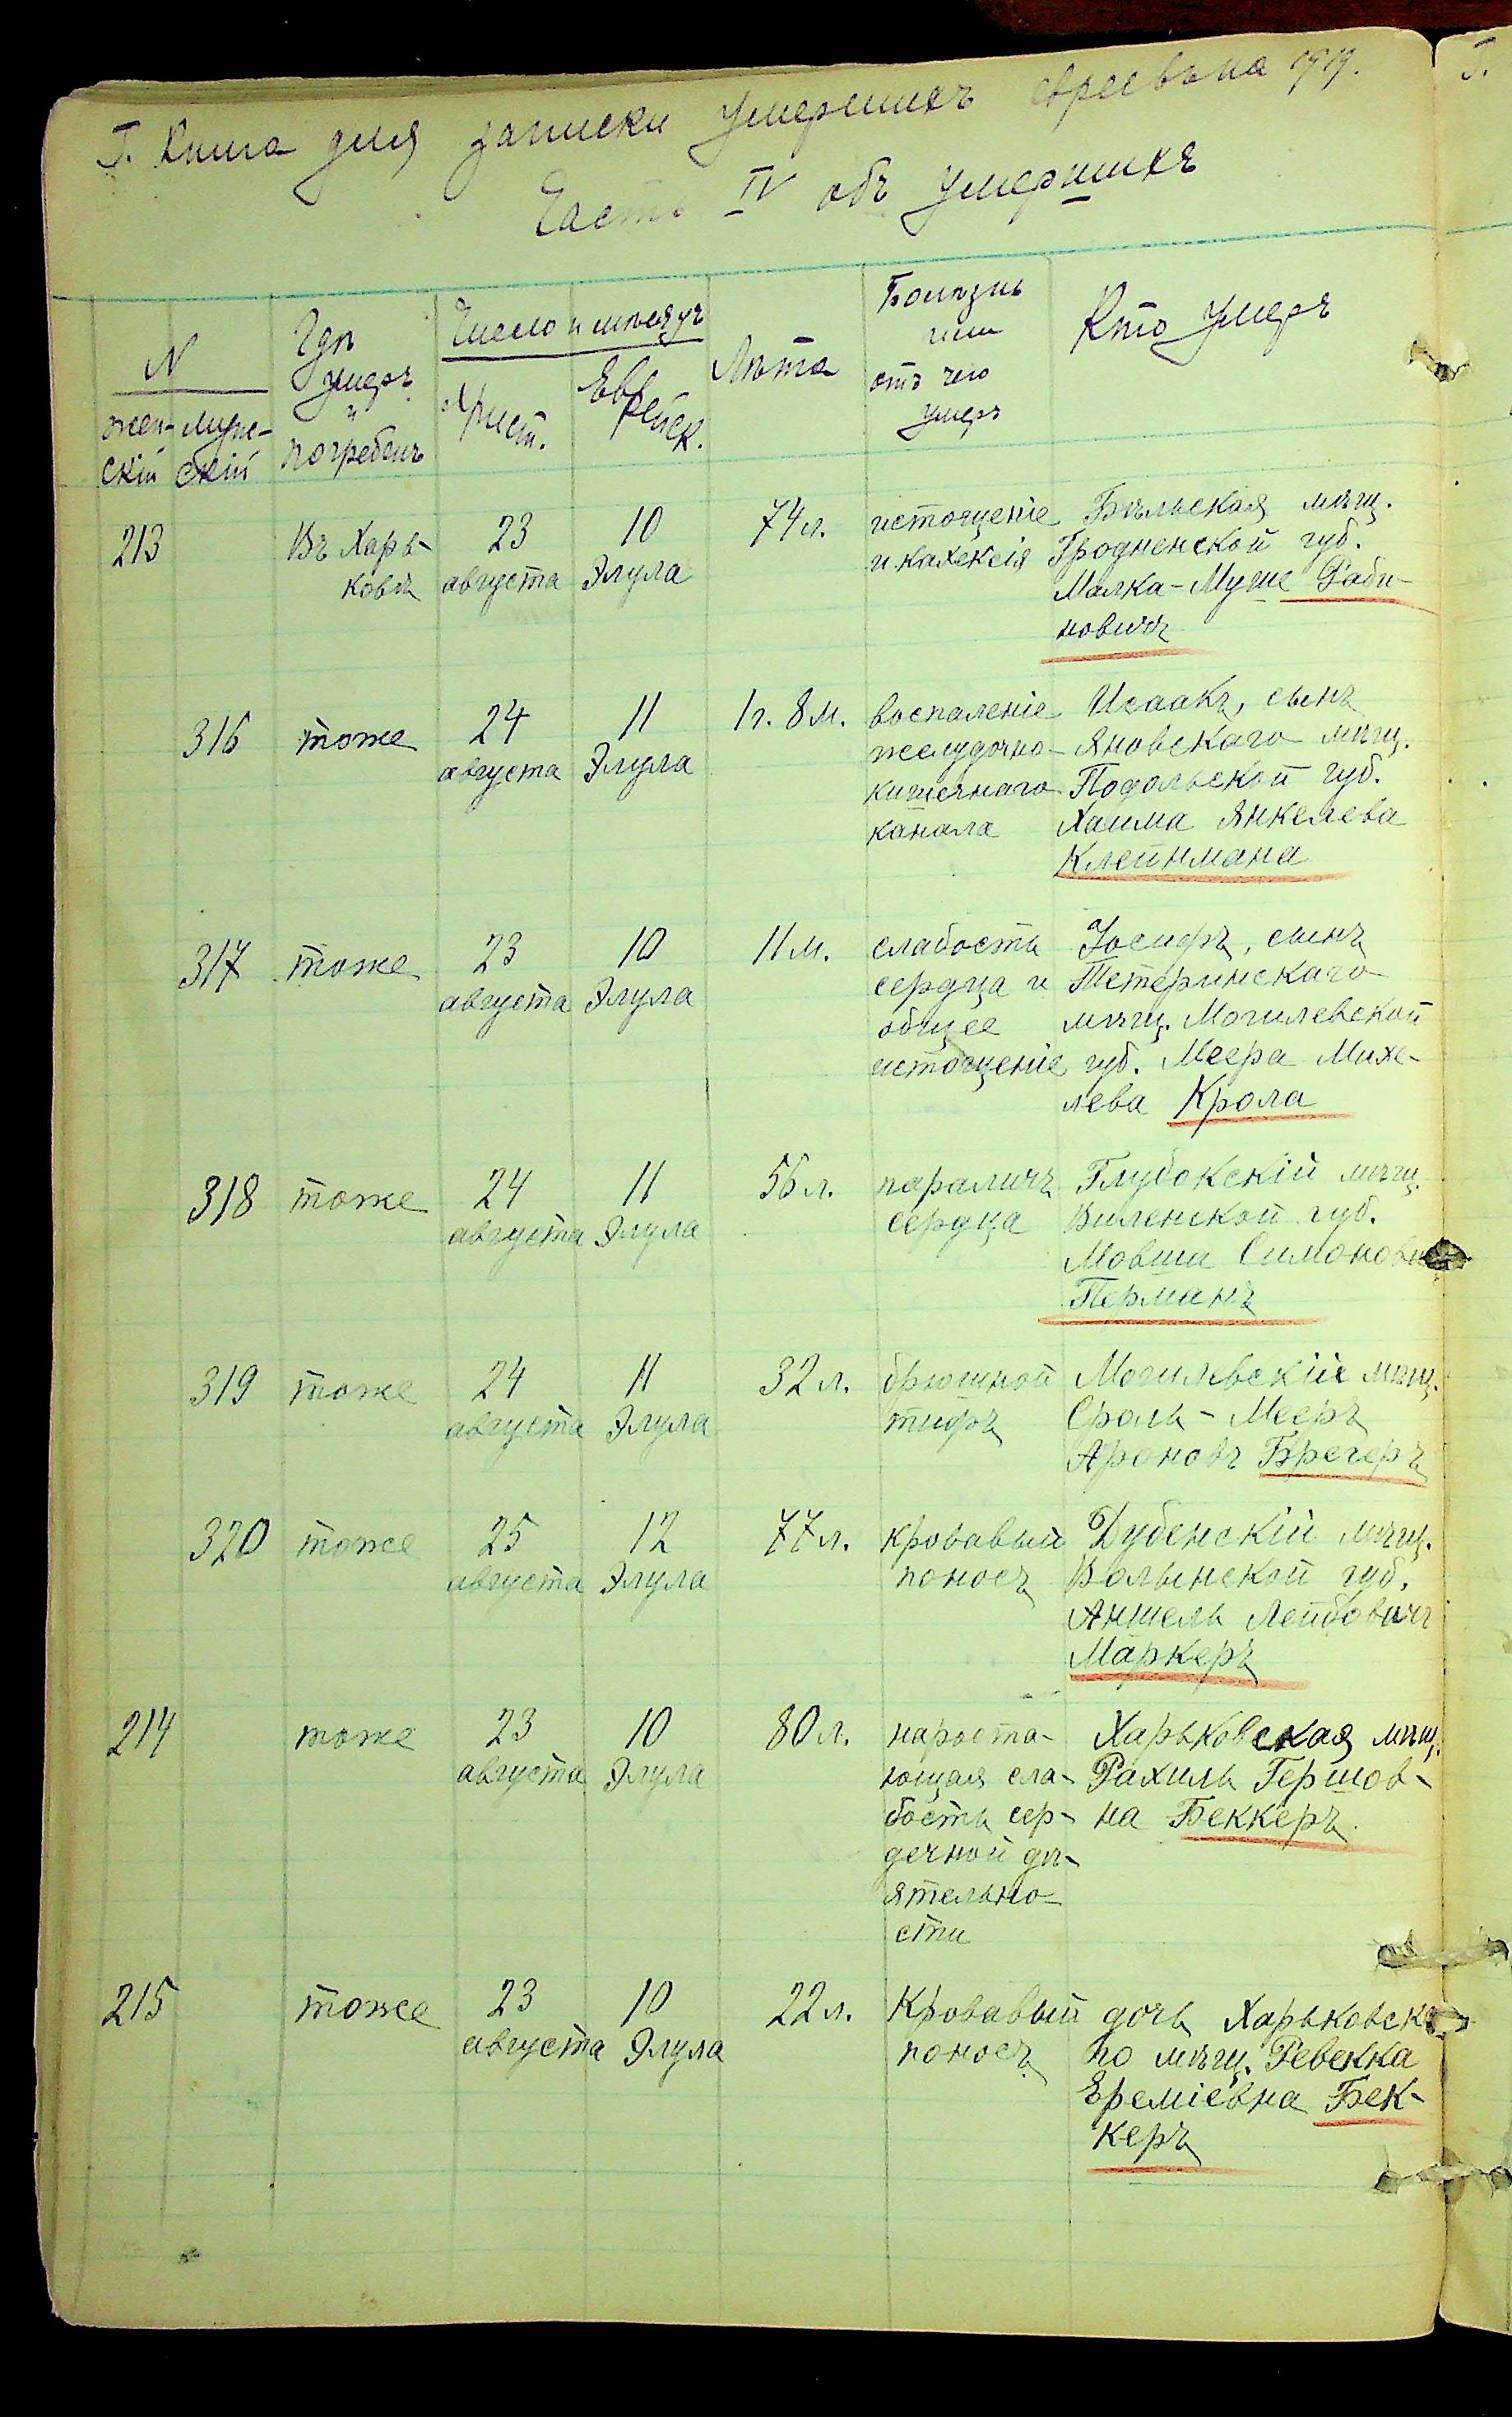 I. Книга для записки умершихъ евреевъ на 1919.
Часть IV объ умершихъ
N
жен- муже-
скій скій
Гдѣ
умеръ
и
погребенъ
Число и мѣсяцъ
Христ.
Еврейск.
Лѣта
Болѣзнь
или
отъ чего
умеръ
Кто умеръ
213
Въ Харь-
ковѣ
23
августа
10
Элула
74 л.
истощеніе
и кахексія
Бѣльская мѣщ.
Гродненской губ.
Малка-Муше Раби-
новичъ
316
тоже
24
августа
11
Элула
1 г. 8 м.
воспаленіе
желудочно-
кишечнаго
канала
Исаакъ, сынъ
Яновскаго мѣщ.
Подольской губ.
Хаима Янкелева
Клейнмана
317
тоже
23
августа
10
Элула
11 м.
слабость
сердца и
общее
истощеніе
Іосифъ, сынъ
Тетеринскаго
мѣщ. Могилевской
губ. Меера Михе-
лева Крола
318
тоже
24
августа
11
Элула
56 л.
параличъ
сердца
Глубокскій мѣщ.
Виленской губ.
Мовша Симонови
Перманъ
319
тоже
24
августа
11
Элула
32 л.
брюшной
тифъ
Могилевскій мѣщ.
Сроль-Мееръ
Ароновъ Брегеръ
320
тоже
25
августа
12
Элула
77 л.
кровавый
поносъ
Дубенскій мѣщ.
Волынской губ.
Аншель Лейбовичъ
Маркеръ
214
тоже
23
августа
10
Элула
80 л.
нароста-
ющая сла-
бость сер-
дечной дѣ-
ятельно-
сти
Харьковская мѣщ.
Рахиль Гершов-
на Беккеръ
215
тоже
23
августа
10
Элула
22 л.
Кровавый
поносъ
дочь Харьковска
го мѣщ. Ревекка
Ереміевна Бек-
керъ